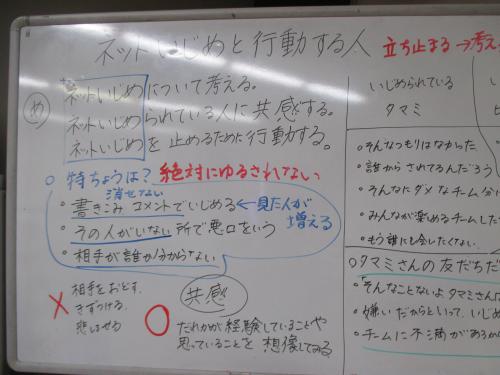 ネットいじめと行動する人
立ち止まる→考え
め
ネットいじめについて考える。
ネットいじめられている人に共感する。
ネットいじめを止めるために行動する。
○特ちょうは? 絶対にゆるされない
消せない
・書きこみ コメントでいじめる←見た人が増える
・その人がいない所で悪口をいう
・相手が誰か分からない
共感
×相手をおとす、
きずつける
悲しませる
○だれかが経験していることや
思っていることを想像してみる
いじめられている
タマミ
・そんなつもりはなかった
・誰からされてるんだろう
・そんなにダメなチーム
・みんなが楽めるチームした
・もう誰にも会いたくない。
○タマミさんの友だちだ
・そんなことないよ、タマミさん
・嫌いだからといって、いじめ
・チームに不満があるか